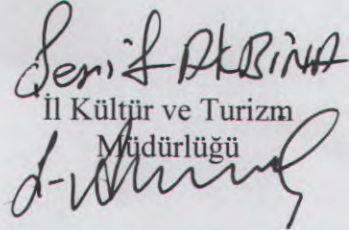 Şerif AKBINA
İl Kültür ve Turizm
Müdürlüğü